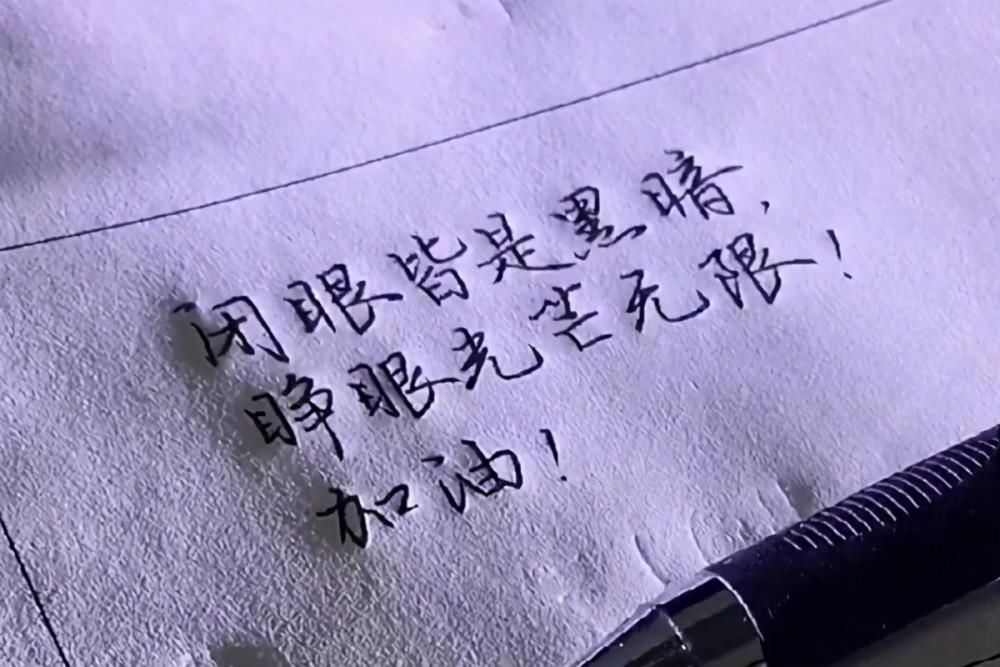 闭眼皆是黑暗，
睁眼光芒无限！
加油！